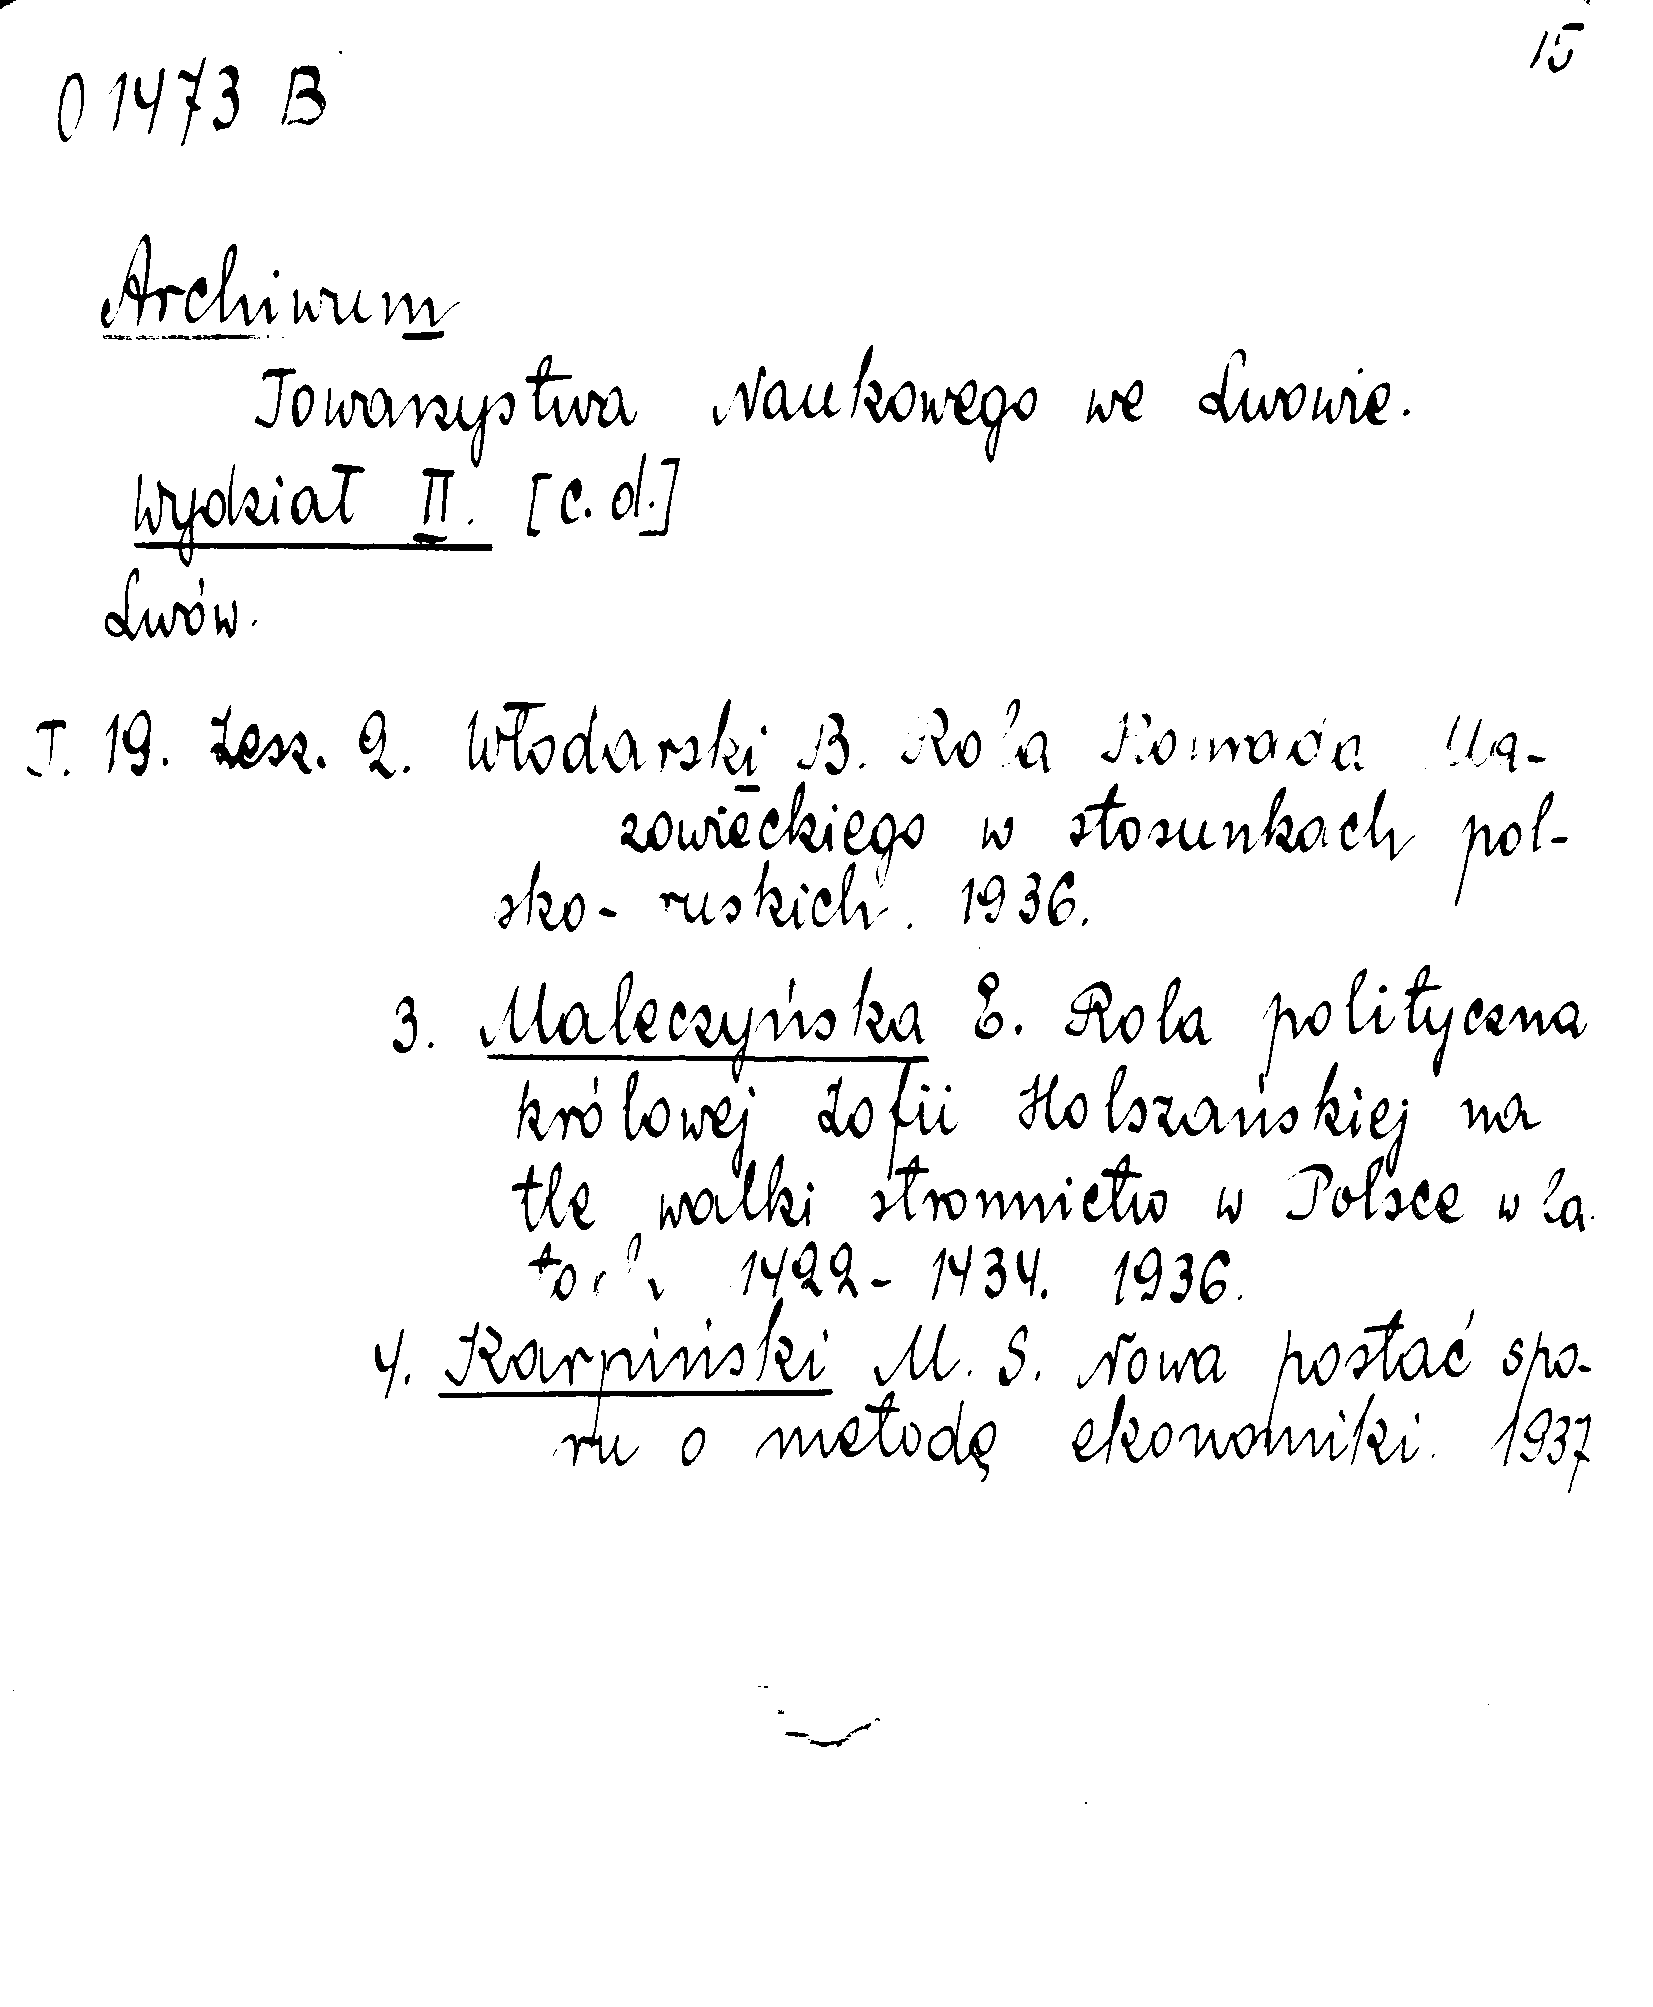 15
O 1473 B
Archiwum
Towarzystwa Naukowego we Lwowie.
Wydział II. [c.d.]
Lwów.
T. 19. Zesz. 2. Włodarski B. Rola Konrada Ma-
zowieckiego w stosunkach pol-
sko-ruskich. 1936.
3. Maleczyńska E. Rola polityczna
królowej Zofii Holszańskiej na
tle walki stronnictw w Polsce w la
tach 1422-1434. 1936.
4. Karpiński M. S. Nowa postać spo-
ru o metodę ekonomiki. 1937